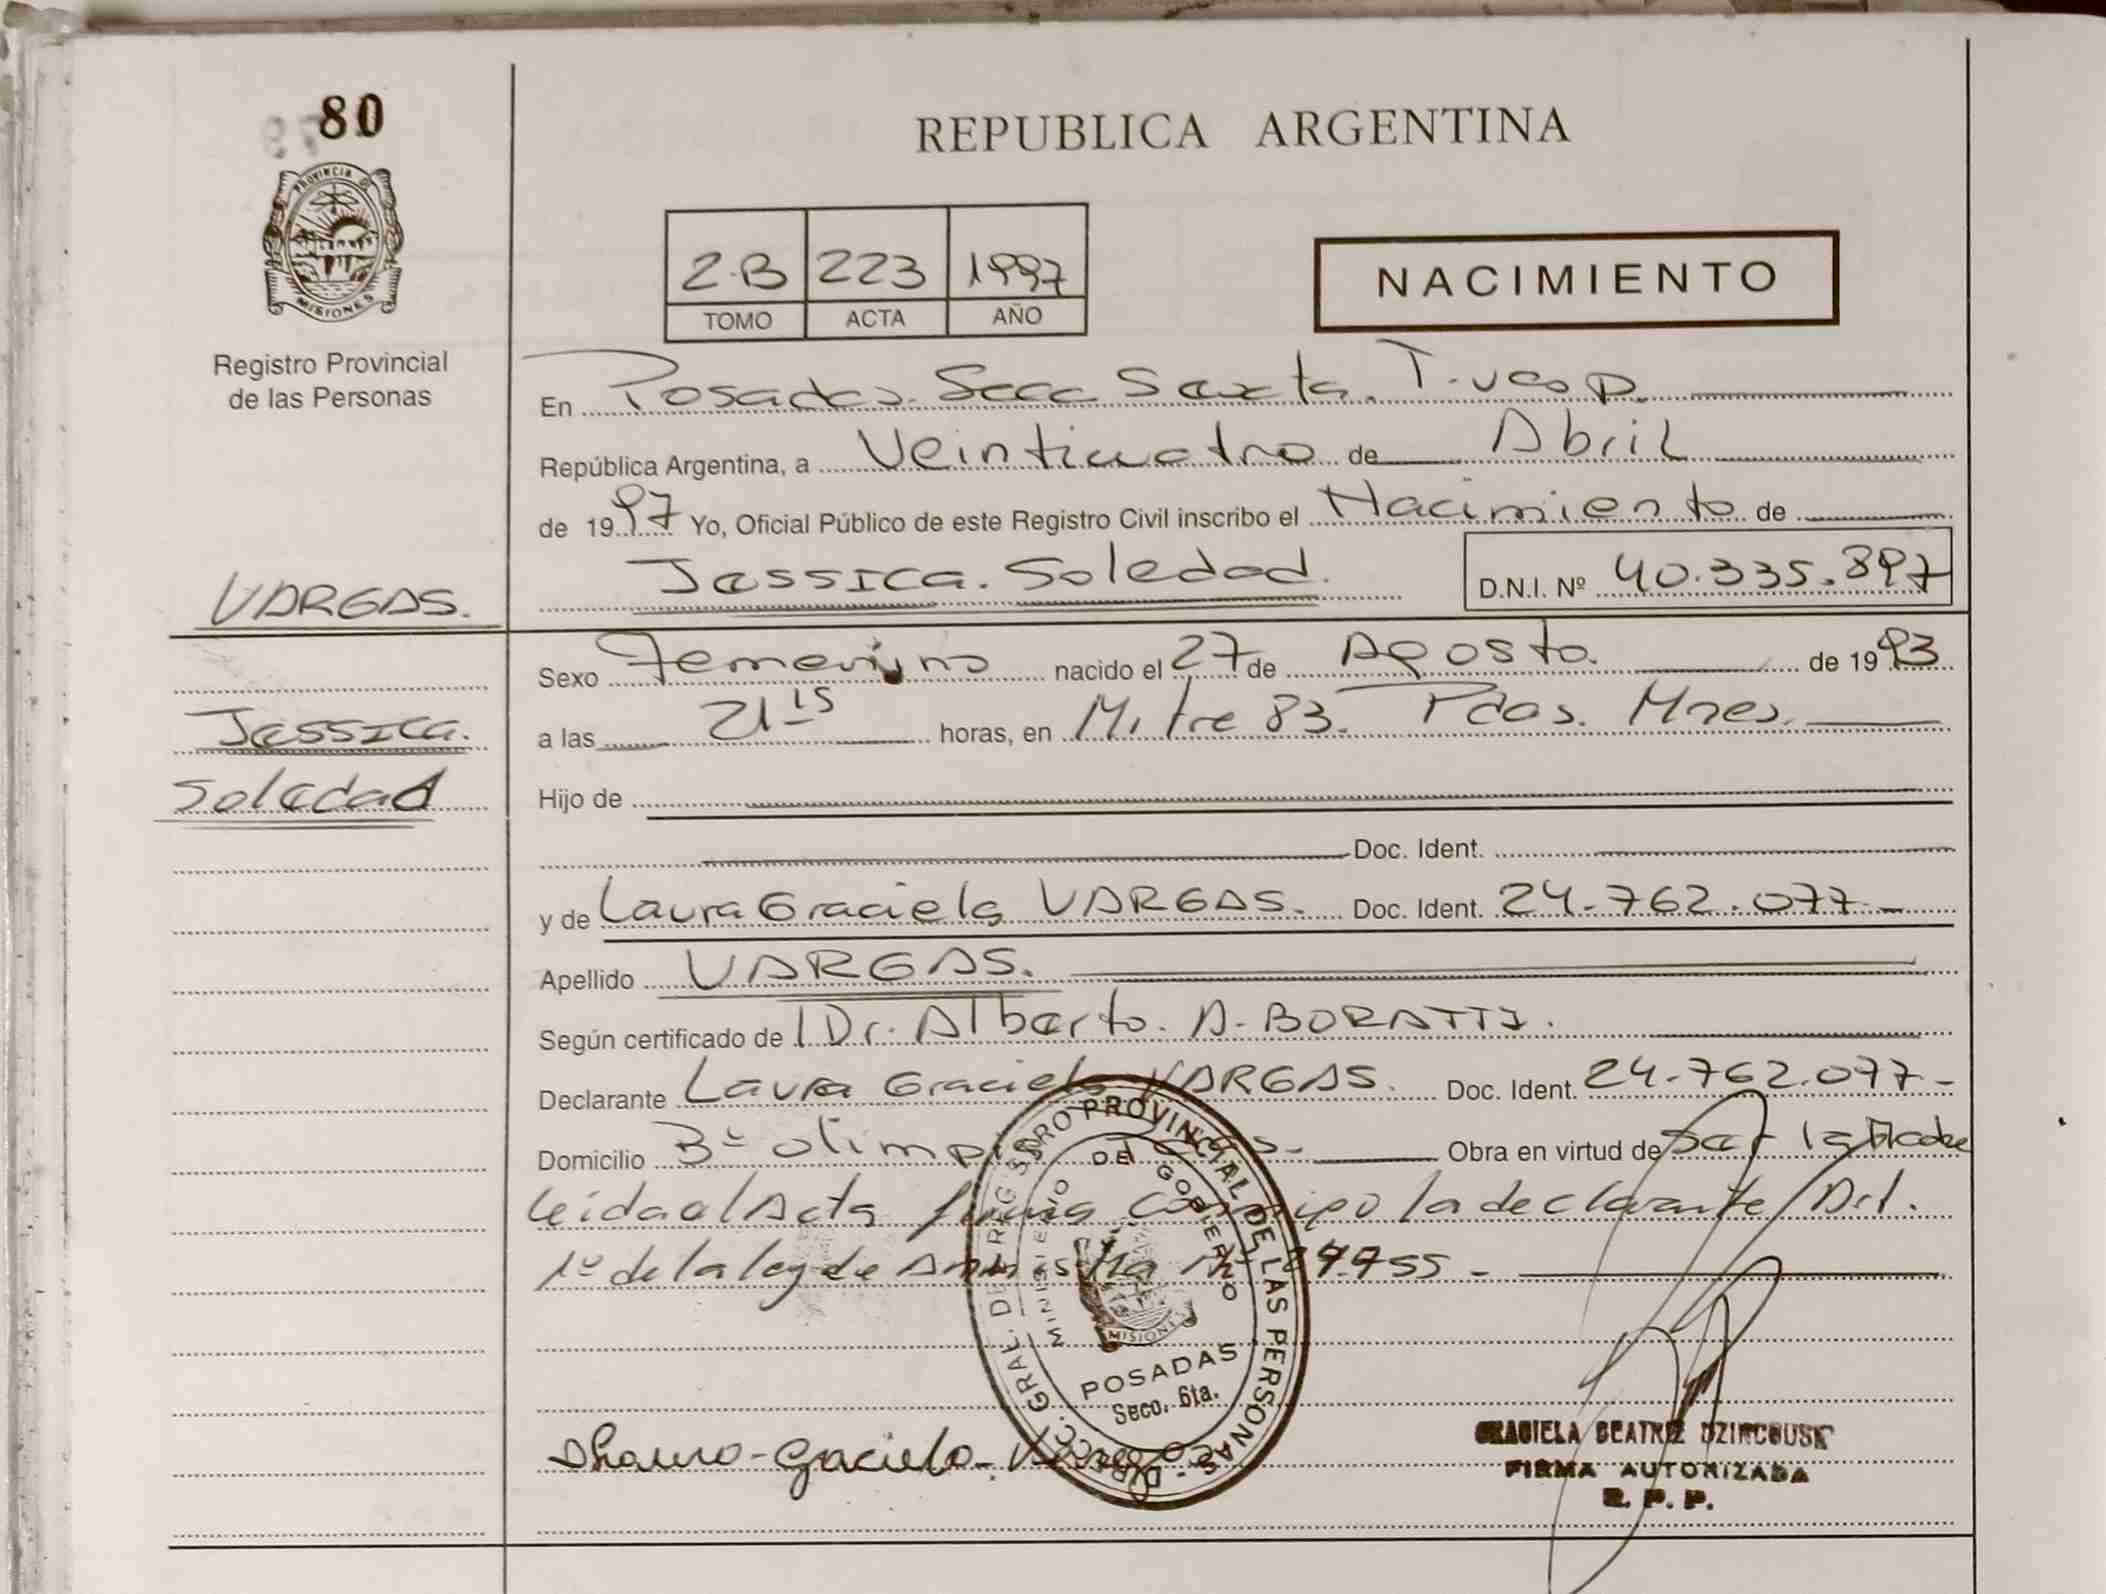 80
PROVINCIA DE
MISIONES
Registro Provincial
de las Personas
REPUBLICA ARGENTINA
2-B 223 1997
TOMO ACTA AÑO
NACIMIENTO
En Posadas. Secc Sexta. T. vesp.
República Argentina, a Veinticuatro de Abril
de 1997 Yo, Oficial Público de este Registro Civil inscribo el Nacimiento de
Jessica. Soledad. D.N.I. Nº 40.335.897
VARGAS.
Jessica.
Soledad
Sexo Femenino nacido el 27 de Agosto. de 1993
a las 21 15 horas, en Mitre 83. Pdas. Mnes.
Hijo de
Doc. Ident.
y de Laura Graciela VARGAS. Doc. Ident. 24.762.077-
Apellido VARGAS.
Según certificado de Dr. Alberto. A. BORATTI.
Declarante Laura Graciela VARGAS. Doc. Ident. 24.762.077-
Domicilio Bº Obra en virtud de Ser la Madre
leida el Acta firma la declarante Art.
1º de la ley de Amnistia Nº 24.755 -
DIRECC. GRAL. DE REGISTRO PROVINCIAL DE LAS PERSONAS -
MINISTERIO DE GOBIERNO
MISIONES
POSADAS
Secc. 6ta.
GRACIELA BEATRIZ
FIRMA AUTORIZADA
R. P. P.